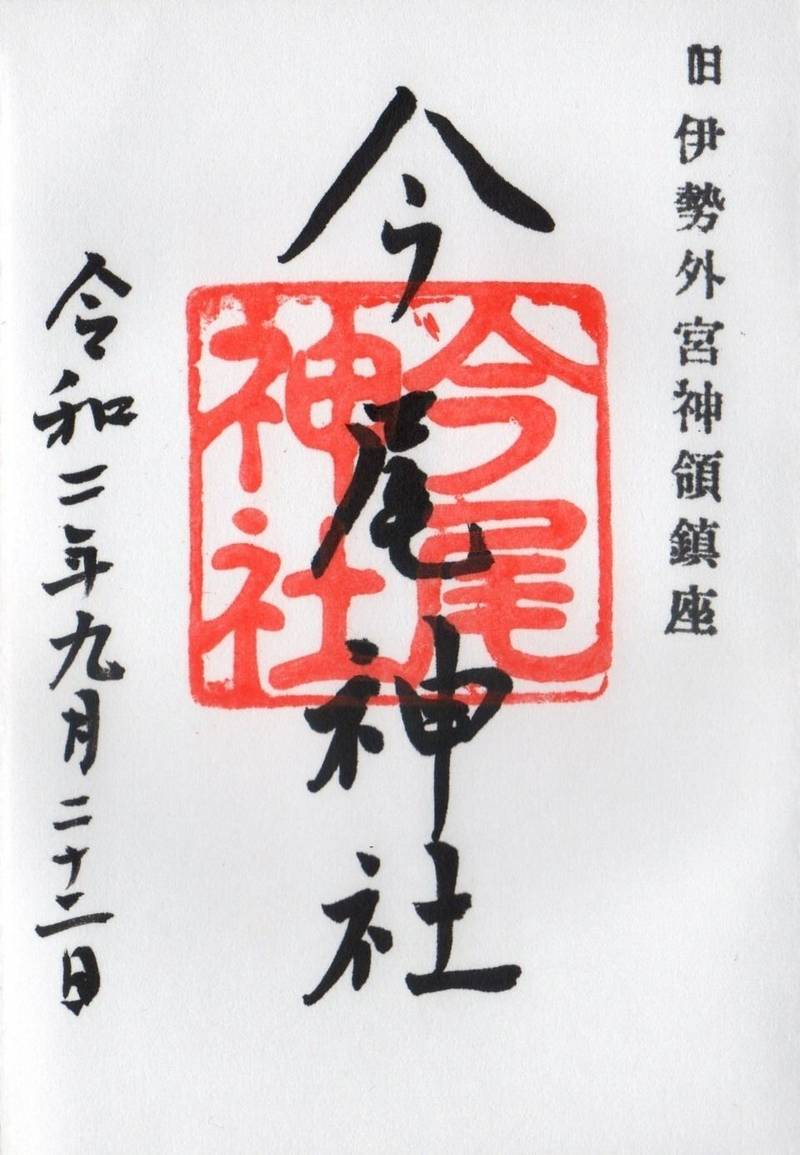 旧伊勢外宮神領鎮座
今尾神社
今尾
神社
令和二年九月二十二日